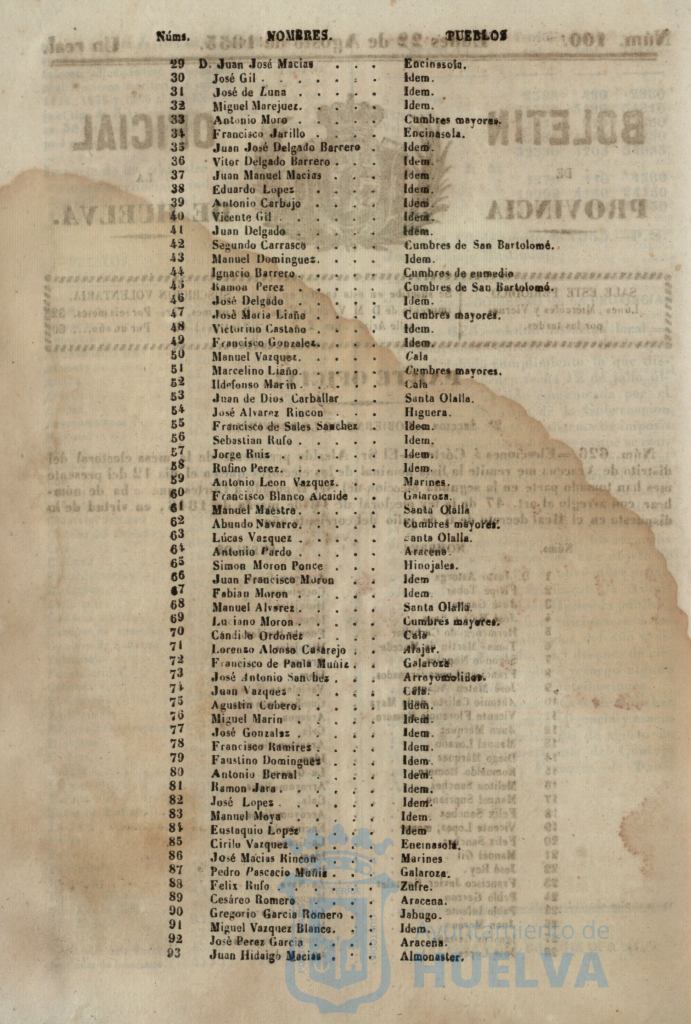 Núms. NOMBRES. PUEBLOS
29 D. Juan José Macias . . . Encinasola.
30 José Gil . . . . . Idem.
31 José de Luna . . . . Idem.
32 Miguel Marejuez. . . . . Idem.
33 Antonio Moro . . . . Cumbres mayores.
34 Francisco Jarillo . . . . Encinasola.
35 Juan José Delgado Barrero . Idem.
36 Vitor Delgado Barrero . . . Idem.
37 Juan Manuel Macias . . . Idem.
38 Eduardo Lopez . . . . Idem.
39 Antonio Carbajo . . . . Idem.
40 Vicente Gil . . . . . Idem.
41 Juan Delgado . . . . Idem.
42 Segundo Carrasco . . . . Cumbres de San Bartolomé.
43 Manuel Dominguez. . . . Idem.
44 Ignacio Barrero . . . . Cumbres de enmedio
45 Ramon Perez . . . . Cumbres de San Bartolomé.
46 José Delgado . . . . Idem.
47 José Maria Liaño . . . . Cumbres mayores.
48 Victorino Castaño . . . . Idem.
49 Francisco Gonzalez. . . . Idem.
50 Manuel Vazquez. . . . . Cala
51 Marcelino Liaño. . . . . Cumbres mayores.
52 Ildefonso Marin . . . . . Cala
53 Juan de Dios Carballar . . Santa Olalla.
54 José Alvarez Rincon . . . Higuera.
55 Francisco de Sales Sanchez . . Idem.
56 Sebastian Rufo . . . . Idem.
57 Jorge Ruiz . . . . . Idem.
58 Rufino Perez. . . . . Idem.
59 Antonio Leon Vazquez. . . Marines.
60 Francisco Blanco Alcaide . . Galaroza.
61 Manuel Maestre. . . . . Santa Olalla
62 Abundo Navarro. . . . . Cumbres mayores.
63 Lúcas Vazquez . . . . anta Olalla.
64 Antonio Pardo . . . . Aracena.
65 Simon Moron Ponce . . . Hinojales.
66 Juan Francisco Moron . . Idem
67 Fabian Moron . . . . . Idem
68 Manuel Alvarez . . . . Santa Olalla.
69 Lu iano Moron . . . . Cumbres mayores.
70 Candido Ordoñez . . . . Cala
71 Lorenzo Alonso Casarejo . . Alajar.
72 Francisco de Paula Muñiz . . Galaroza
73 José Antonio Sanchez . . . Arroyomolinos.
74 Juan Vazquez . . . . . Cala.
75 Agustin Cubero. . . . . Idem.
76 Miguel Marin . . . . Idem.
77 José Gonzalez . . . . Idem.
78 Francisco Ramirez . . . . Idem.
79 Faustino Dominguez . . . Idem.
80 Antonio Bernal . . . . Idem.
81 Ramon Jara . . . . . Idem.
82 José Lopez . . . . . Idem.
83 Manuel Moya . . . . Idem.
84 Eustaquio Lopez . . . . Idem
85 Cirilo Vazquez . . . . . Encinasola.
86 José Macias Rincon . . . Marines
87 Pedro Pascacio Muñiz . . . Galaroza.
88 Felix Rufo . . . . . Zufre.
89 Cesáreo Romero . . . . Aracena.
90 Gregorio Garcia Romero . . Jabugo.
91 Miguel Vazquez Blanco. . . Idem.
92 José Perez Garcia . . . . Aracena.
93 Juan Hidalgo Macias . . . Almonaster.
Ayuntamiento de
HUELVA